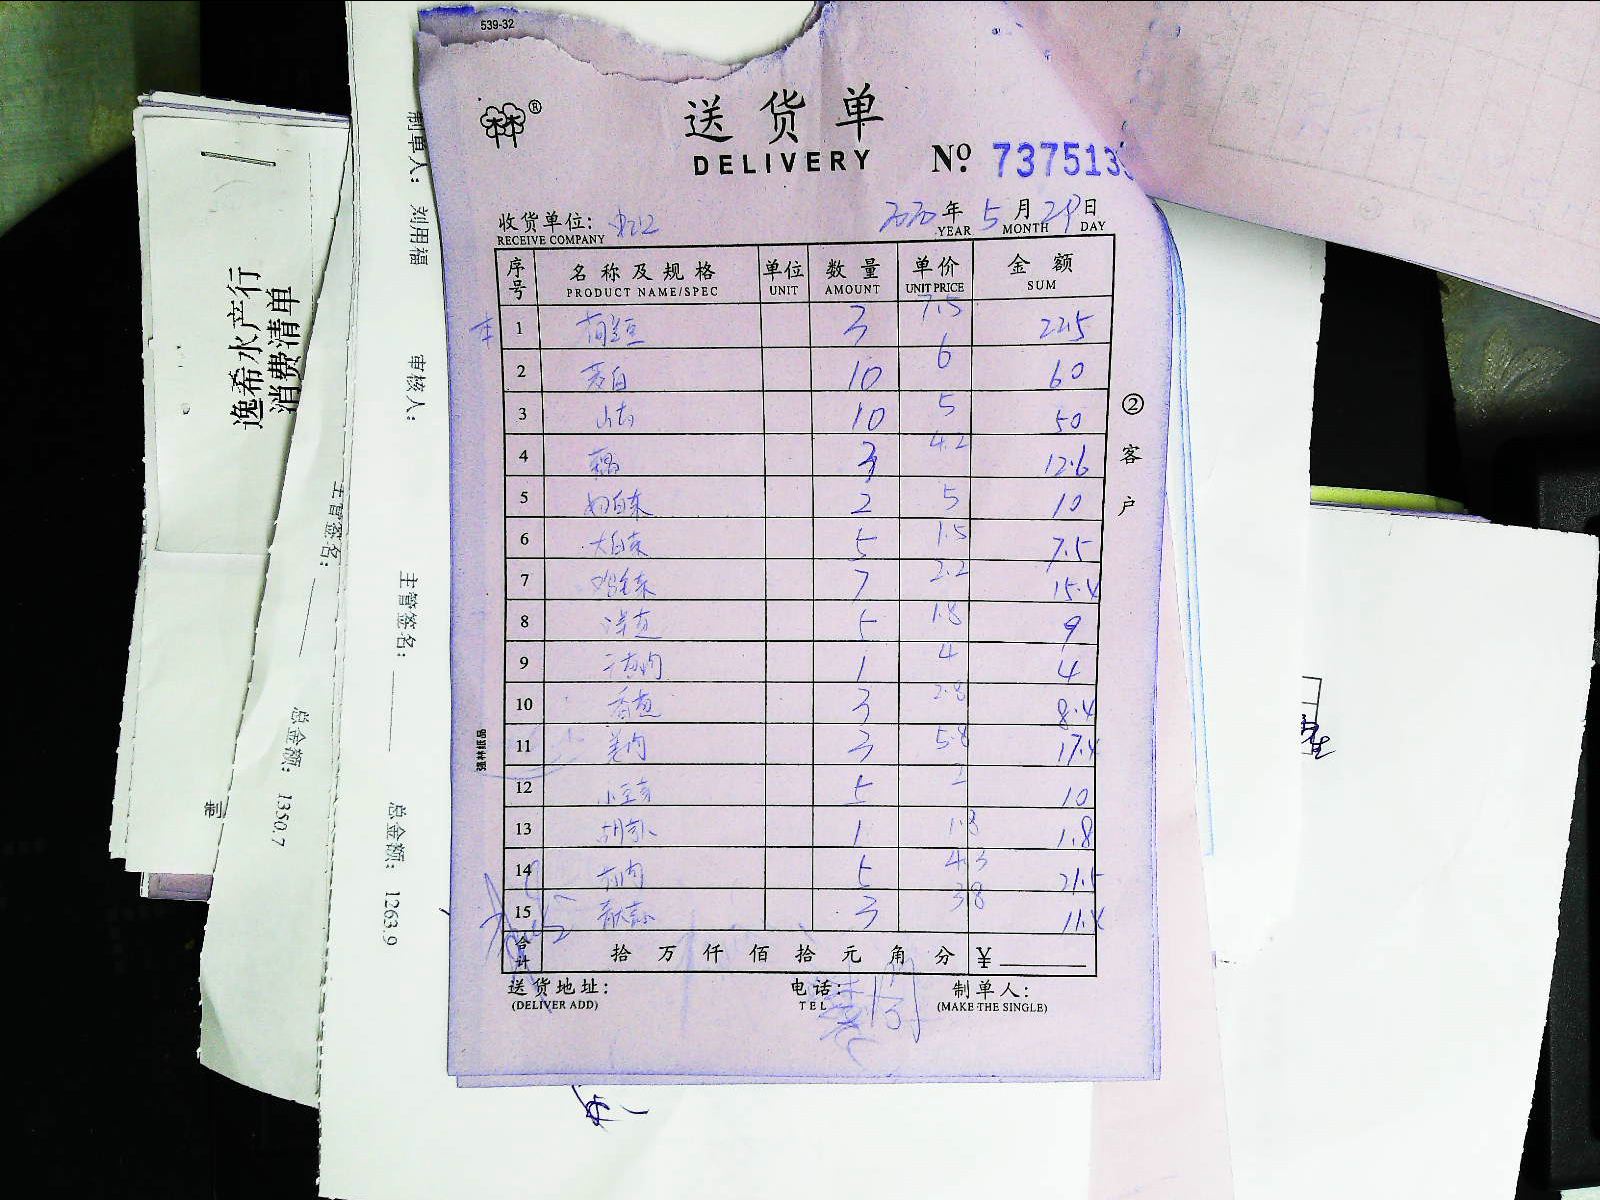 539-32
送货单
DELIVERY № 737513
收货单位:
RECEIVE COMPANY
2020 年 5 月 29 日
YEAR MONTH DAY
序号 名称及规格 单位 数量 单价 金额
PRODUCT NAME/SPEC UNIT AMOUNT UNIT PRICE SUM
1 3 7.5 22.5
2 茭白 10 6 60
3 山药 10 5 50
4 藕 3 4.2 12.6
5 奶白菜 2 5 10
6 大白菜 5 1.5 7.5
7 鸡毛菜 7 2.2 15.4
8 洋葱 5 1.8 9
9 1 4 4
10 香葱 3 2.8 8.4
11 姜肉 3 5.8 17.4
12 小豆芽 5 2 10
13 1 1.8 1.8
14 5 4.3 21.5
15 3 3.8 11.4
合计 拾 万 仟 佰 拾 元 角 分 ¥
送货地址: 电话: 制单人:
(DELIVER ADD) TEL (MAKE THE SINGLE)
② 客户
强林纸品
逸希水产行
消费清单
制单人: 刘用福
审核人:
主管签名:
主管签名:
总金额: 1350.7
总金额: 1263.9
制